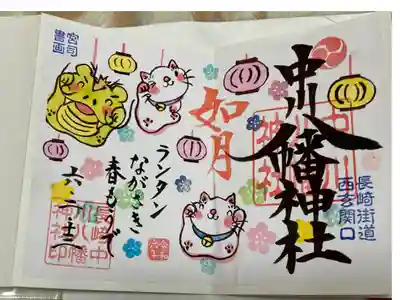 長崎街道
西玄関口
中川八幡神社
中川
八幡
神社
如月
ランタン
ながさき
春もうで
六・二・十三
宮司
書画
長崎中
川八幡
神社印